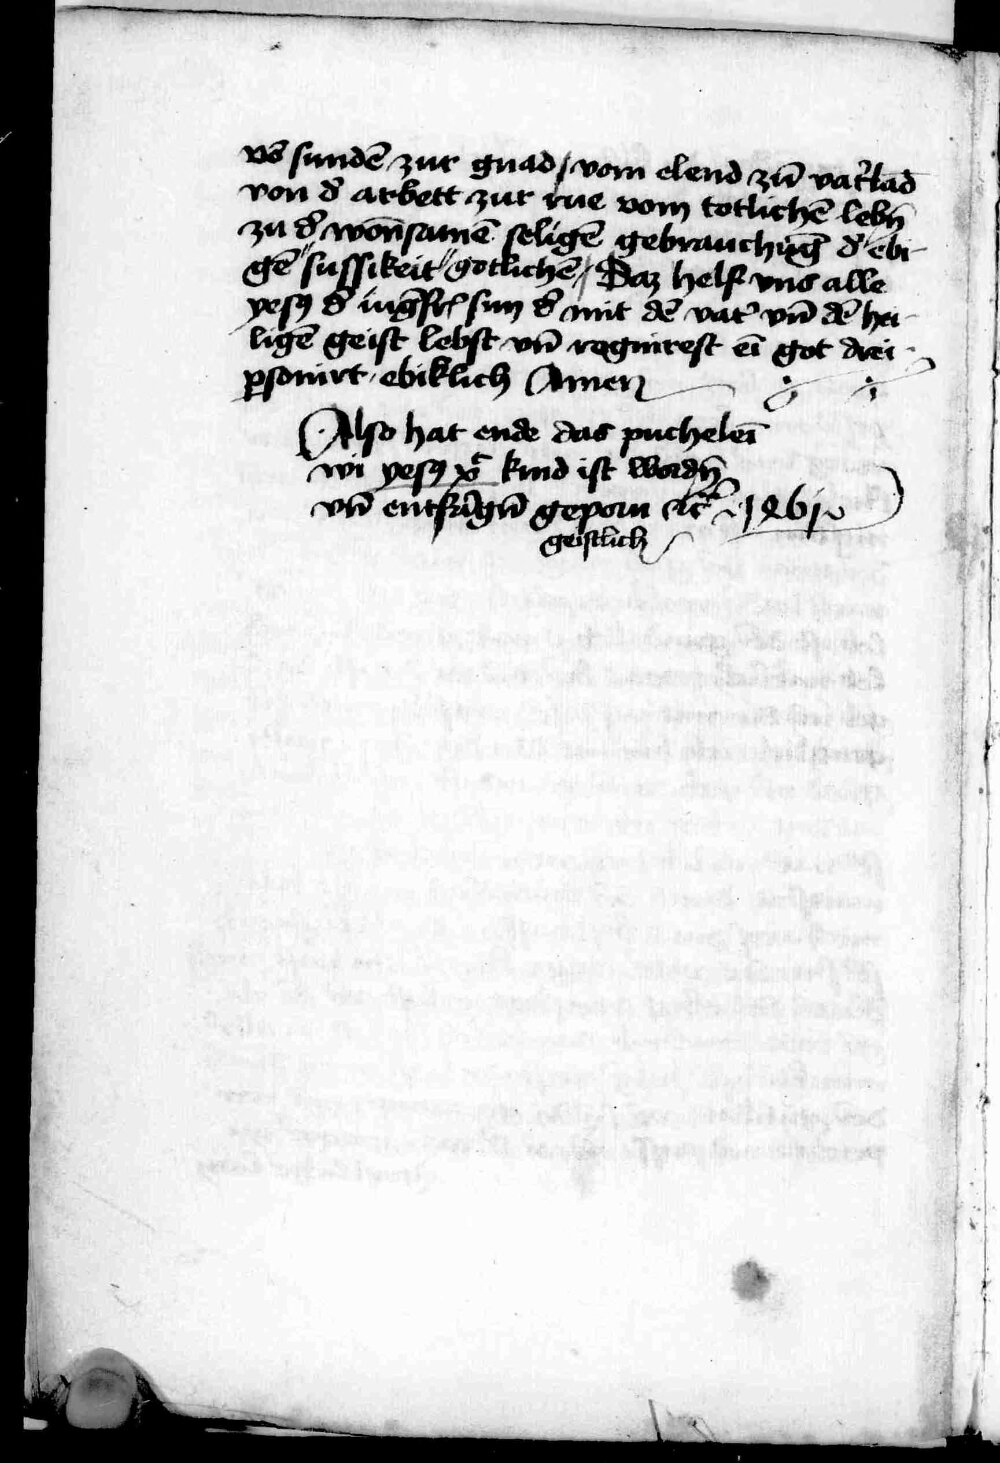 vō sundē zur gnad / vom elend zū vat'lād
von d' arbett zur rue vom totlichē lebn̄
zu d' won̄samē seligē gebrauchūg d' ebi-
gē sussikeit gotlichē / Daz helf vns alle
yesꝯ d' iūgfr sun d' mit dē vat' vn̄ dē hei-
ligē geist lebst vn̄ regnirest eī got drei
ꝑsonirt ebiklich Amen
Also hat ende das pucheleī
wi yesꝯ xp̄ kind ist wordn̄
vn̄ geporn etc 1461
geistlich